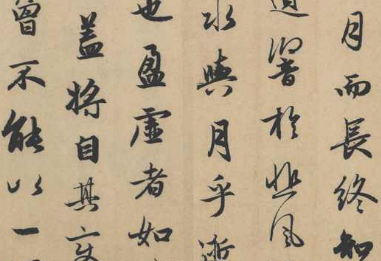 月而長終知
響於悲風
水與月乎逝
也盈虛者如
蓋將自其變
曾不能以一